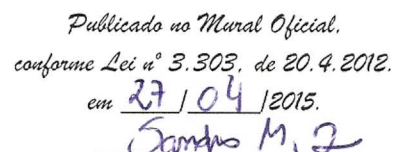 Publicado no Mural Oficial,
conforme Lei nº 3.303, de 20.4.2012.
em 27/04/2015.
M.